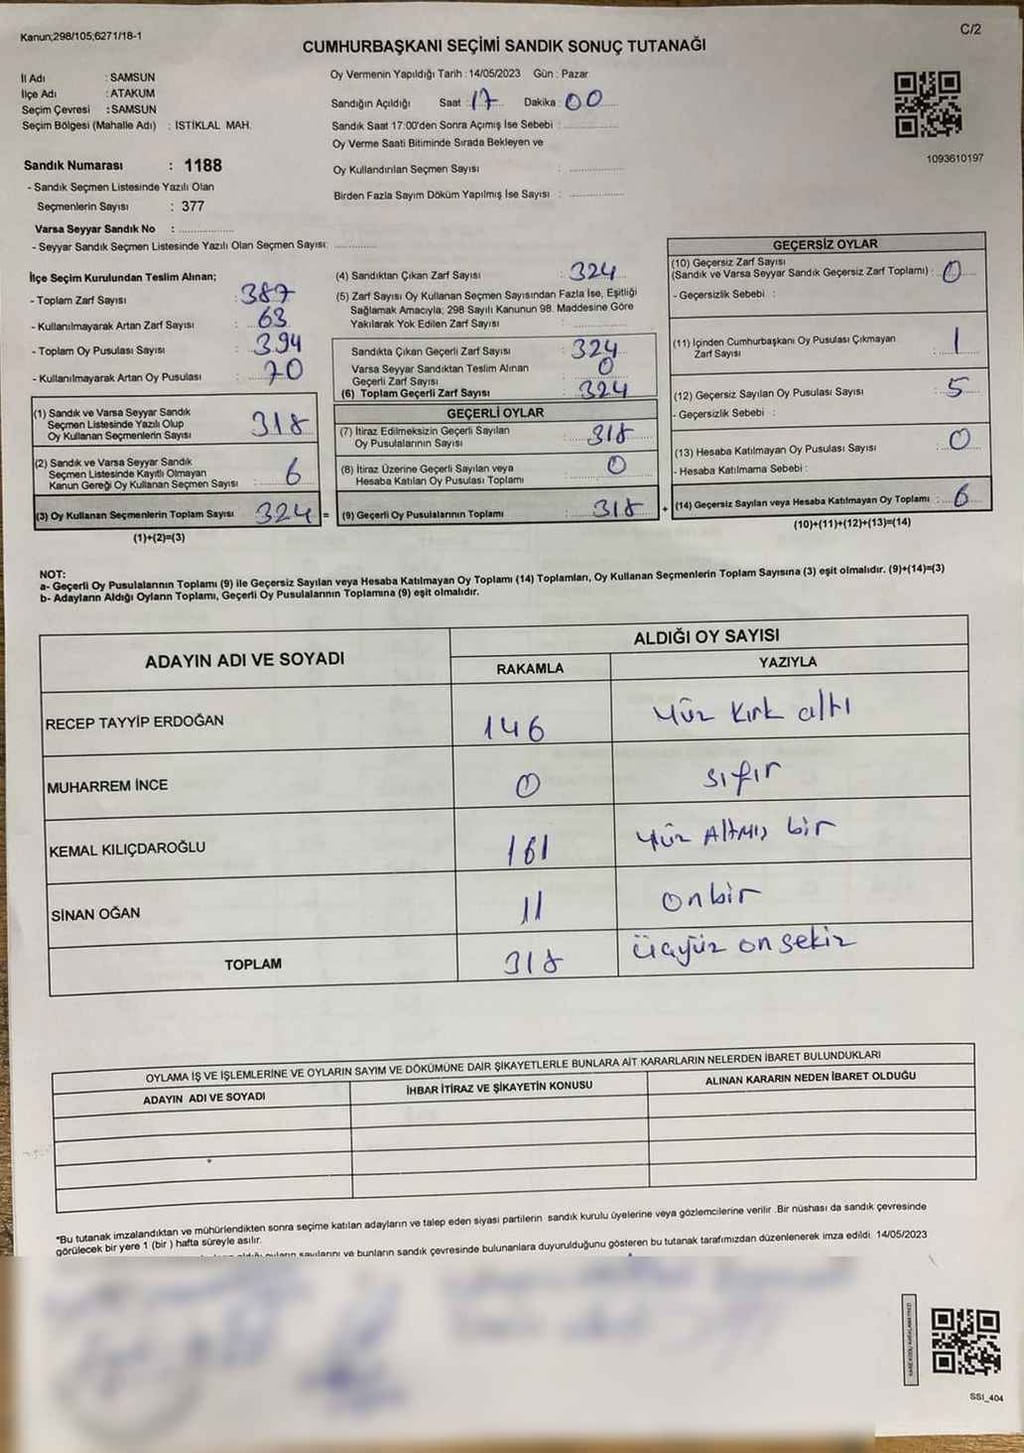 Kanun;298/105;6271/18-1
C/2
CUMHURBAŞKANI SEÇİMİ SANDIK SONUÇ TUTANAĞI
İl Adı : SAMSUN
İlçe Adı : ATAKUM
Seçim Çevresi : SAMSUN
Seçim Bölgesi (Mahalle Adı) : İSTİKLAL MAH.
Oy Vermenin Yapıldığı Tarih : 14/05/2023 Gün : Pazar
Sandığın Açıldığı Saat : 17 Dakika : 00
Sandık Saat 17:00'den Sonra Açımış İse Sebebi :
Oy Verme Saati Bitiminde Sırada Bekleyen ve
Oy Kullandırılan Seçmen Sayısı :
Birden Fazla Sayım Döküm Yapılmış İse Sayısı :
1093610197
Sandık Numarası : 1188
- Sandık Seçmen Listesinde Yazılı Olan
Seçmenlerin Sayısı : 377
Varsa Seyyar Sandık No :
- Seyyar Sandık Seçmen Listesinde Yazılı Olan Seçmen Sayısı:
İlçe Seçim Kurulundan Teslim Alınan;
- Toplam Zarf Sayısı : 387
- Kullanılmayarak Artan Zarf Sayısı : 63
- Toplam Oy Pusulası Sayısı : 394
- Kullanılmayarak Artan Oy Pusulası : 70
(1) Sandık ve Varsa Seyyar Sandık
Seçmen Listesinde Yazılı Olup
Oy Kullanan Seçmenlerin Sayısı 318
(2) Sandık ve Varsa Seyyar Sandık
Seçmen Listesinde Kayıtlı Olmayan
Kanun Gereği Oy Kullanan Seçmen Sayısı 6
(3) Oy Kullanan Seçmenlerin Toplam Sayısı 324 =
(1)+(2)=(3)
(4) Sandıktan Çıkan Zarf Sayısı : 324
(5) Zarf Sayısı Oy Kullanan Seçmen Sayısından Fazla İse, Eşitliği
Sağlamak Amacıyla; 298 Sayılı Kanunun 98. Maddesine Göre
Yakılarak Yok Edilen Zarf Sayısı :
Sandıkta Çıkan Geçerli Zarf Sayısı : 324
Varsa Seyyar Sandıktan Teslim Alınan
Geçerli Zarf Sayısı : 0
(6) Toplam Geçerli Zarf Sayısı : 324
GEÇERLİ OYLAR
(7) İtiraz Edilmeksizin Geçerli Sayılan
Oy Pusulalarının Sayısı : 318
(8) İtiraz Üzerine Geçerli Sayılan veya
Hesaba Katılan Oy Pusulası Toplamı : 0
(9) Geçerli Oy Pusulalarının Toplamı : 318 +
GEÇERSİZ OYLAR
(10) Geçersiz Zarf Sayısı
(Sandık ve Varsa Seyyar Sandık Geçersiz Zarf Toplamı) : 0
- Geçersizlik Sebebi :
(11) İçinden Cumhurbaşkanı Oy Pusulası Çıkmayan
Zarf Sayısı : 1
(12) Geçersiz Sayılan Oy Pusulası Sayısı : 5
- Geçersizlik Sebebi :
(13) Hesaba Katılmayan Oy Pusulası Sayısı : 0
- Hesaba Katılmama Sebebi :
(14) Geçersiz Sayılan veya Hesaba Katılmayan Oy Toplamı : 6
(10)+(11)+(12)+(13)=(14)
NOT:
a- Geçerli Oy Pusulalarının Toplamı (9) ile Geçersiz Sayılan veya Hesaba Katılmayan Oy Toplamı (14) Toplamları, Oy Kullanan Seçmenlerin Toplam Sayısına (3) eşit olmalıdır. (9)+(14)=(3)
b- Adayların Aldığı Oyların Toplamı, Geçerli Oy Pusulalarının Toplamına (9) eşit olmalıdır.
ADAYIN ADI VE SOYADI
ALDIĞI OY SAYISI
RAKAMLA YAZIYLA
RECEP TAYYİP ERDOĞAN 146 Yüz Kırk altı
MUHARREM İNCE 0 sıfır
KEMAL KILIÇDAROĞLU 161 Yüz Altmış bir
SİNAN OĞAN 11 on bir
TOPLAM 318 üçyüz on sekiz
OYLAMA İŞ VE İŞLEMLERİNE VE OYLARIN SAYIM VE DÖKÜMÜNE DAİR ŞİKAYETLERLE BUNLARA AİT KARARLARIN NELERDEN İBARET BULUNDUKLARI
ADAYIN ADI VE SOYADI İHBAR İTİRAZ VE ŞİKAYETİN KONUSU ALINAN KARARIN NEDEN İBARET OLDUĞU
"Bu tutanak imzalandıktan ve mühürlendikten sonra seçime katılan adayların ve talep eden siyasi partilerin sandık kurulu üyelerine veya gözlemcilerine verilir .Bir nüshası da sandık çevresinde
görülecek bir yere 1 (bir ) hafta süreyle asılır.
sayılarını ve bunların sandık çevresinde bulunanlara duyurulduğunu gösteren bu tutanak tarafımızdan düzenlenerek imza edildi. 14/05/2023
SSI_404